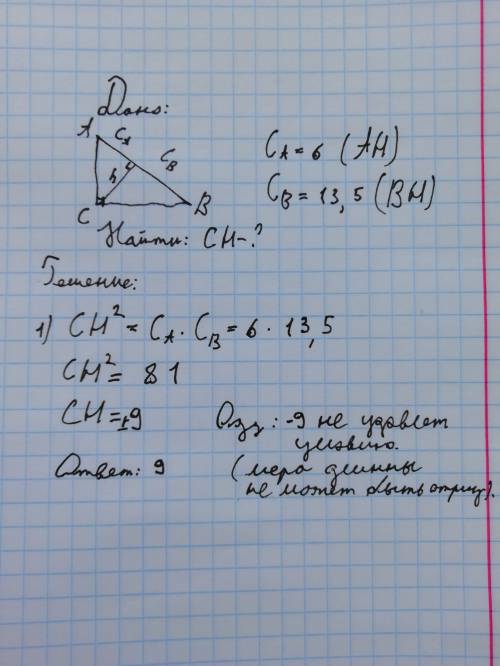 Дано:
A C_A
C_B
h
C B
C_A = 6 (AH)
C_B = 13,5 (BH)
Найти: CH-?
Решение:
1) CH² = C_A · C_B = 6 · 13,5
CH² = 81
CH = ±9 Одз: -9 не удовлет
условию.
Ответ: 9 (мера длинны
не может быть отриц).